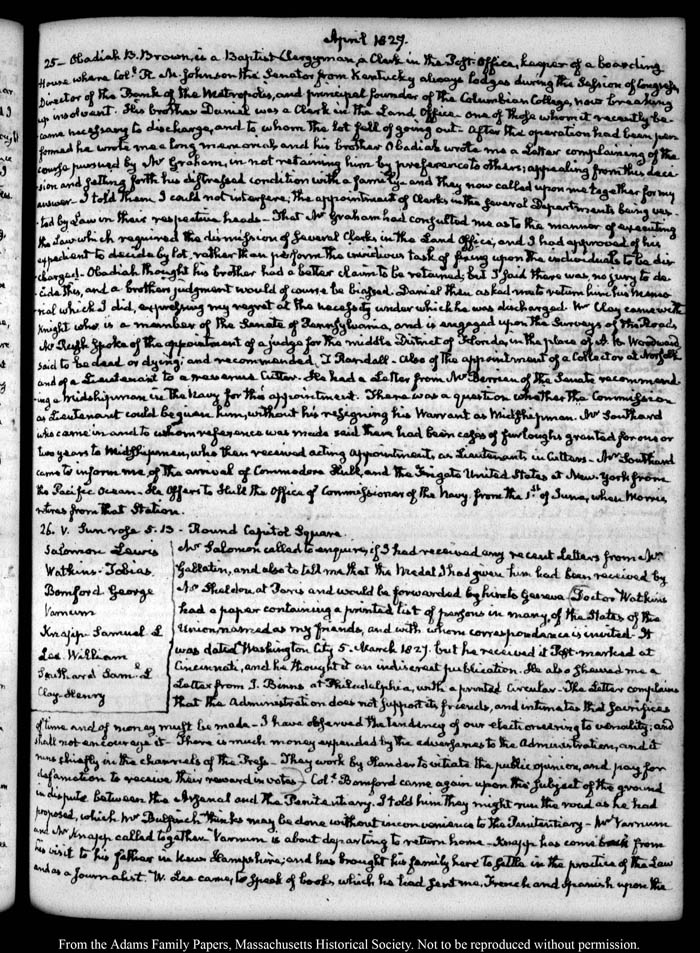 April 1827.
25— Obadiah B. Brown, is a Baptist Clergyman, a Clerk in the Post-Office, keeper of a boarding
House where Col.ͤ R. M. Johnson the Senator from Kentucky always lodges during the Session of Congress,
Director of the Bank of the Metropolis, and principal founder of the Columbian College, now breaking
up insolvent. His brother Daniel was a Clerk in the Land Office— one of those whom it recently be-
came necessary to discharge, and to whom the lot fell of going out— After the operation had been per-
formed he wrote me a long memorial, and his brother Obadiah wrote me a Letter complaining of the
course pursued by Mr Graham, in not retaining him by preference to others; appealing from this deci-
sion and setting forth his distressed condition with a family— and they now called upon me together for my
answer— I told them I could not interfere; the appointment of Clerks in the several Departments being ves-
ted by Law in their respective heads— That Mr Graham had consulted me as to the manner of executing
the Law which required the dismission of several Clerks in the Land Office, and I had approved of his
expedient to decide by lot, rather than perform the invidious task of fixing upon the individuals to be dis-
charged— Obadiah thought his brother had a better claim to be retained, but I said there was no jury to de-
cide this, and a brother's judgment would of course be biassed. Daniel then asked me to return him his Memo-
rial which I did, expressing my regret at the necessity under which he was discharged. Mr Clay came with
Knight who is a member of the Senate of Pennsylvania, and is engaged upon the Surveys of the Roads
Mr Rush spoke of the appointment of a judge for the middle District of Florida, in the place of A. B. Woodward
said to be dead or dying; and recommended, T. Randall— Also of the appointment of a Collector at Norfolk
and of a Lieutenant to a revenue Cutter— He had a Letter from Mr Berrien of the Senate recommend-
ing a Midshipman in the Navy for this appointment. There was a question whether the Commission
as Lieutenant could be given him, without his resigning his Warrant as Midshipman. Mr Southard
who came in and to whom reference was made said there had been cases of furloughs granted for one or
two years to Midshipmen, who then received acting appointments as Lieutenants in Cutters— Mr Southard
came to inform me of the arrival of Commodore Hull, and the Frigate United States at New-York from
the Pacific Ocean— He offers to Hull the Office of Commissioner of the Navy from the 1st of June, when Morris
retires from that Station.
26. V. Sun rose 5.13— Round Capitol Square.
Solomon Lewis
Watkins— Tobias
Bomford George
Varnum
Knapp Samuel L
Lee William
Southard Saml. L
Clay— Henry
Mr Salomon called to enquire, if I had received any recent Letters from Mr
Gallatin, and also to tell me that the Medal I had given him had been received by
Mr Sheldon, at Paris and would be forwarded by him to Geneva. Doctor Watkins
had a paper containing a printed list of persons in many, of the States of the
Union named as my friends, and with whom correspondence is invited— It
was dated Washington City 5. March 1827. but he received it Post-marked at
Cincinnati, and he thought it an indiscreet publication. He also shewed me a
Letter from J. Binns at Philadelphia, with a printed Circular— The Letter complains
that the Administration does not support its friends, and intimates that sacrifices
of time and of money must be made— I have observed the tendency of our electioneering to venality; and
shall not encourage it— There is much money expended by the adversaries to the Administration, and it
runs chiefly in the channels of the Press— They work by slander to vitiate the public opinion, and pay for
defamation to receive their reward in votes— Col.ͤ Bomford came again upon the subject of the ground
in dispute between the Arsenal and the Penitentiary. I told him they might run the road as he had
proposed, which Mr Bulfinch thinks may be done without inconvenience to the Penitentiary— Mr Varnum
and Mr Knapp called together. Varnum is about departing to return home— Knapp has come back from
his visit to his father in New Hampshire; and has brought his family here to settle in the practice of the Law
and as a Journalist. W. Lee came, to speak of books which he had sent me, French and Spanish upon the
From the Adams Family Papers, Massachusetts Historical Society. Not to be reproduced without permission.